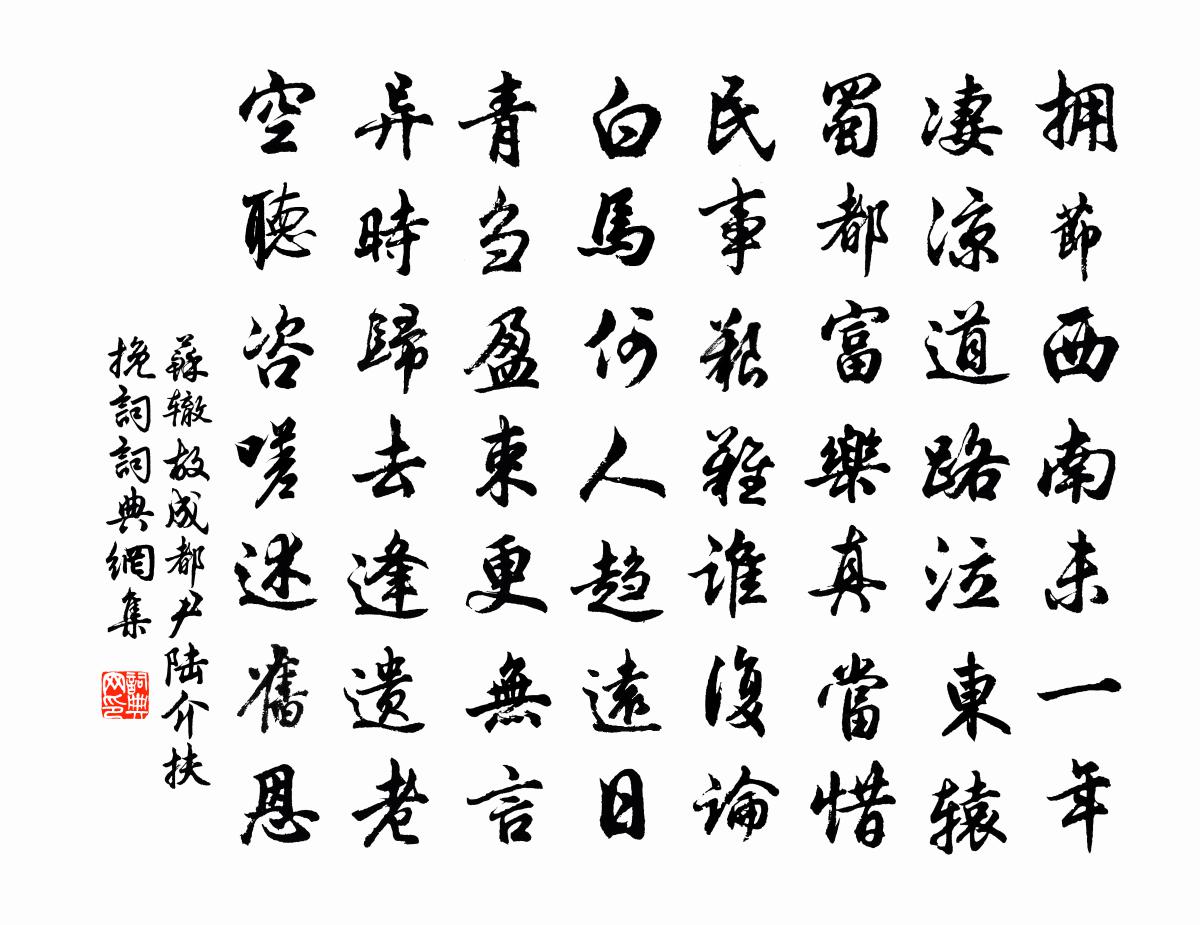 拥節西南未一年
凄凉道路泣東辕
蜀都富樂真當惜
民事艱難誰復論
白馬何人趋遠日
青刍盈束更無言
异時歸去逢遗老
空聽咨嗟述舊恩
蘇辙故成都尹陆介扶
挽詞詞典網集
詞典网印